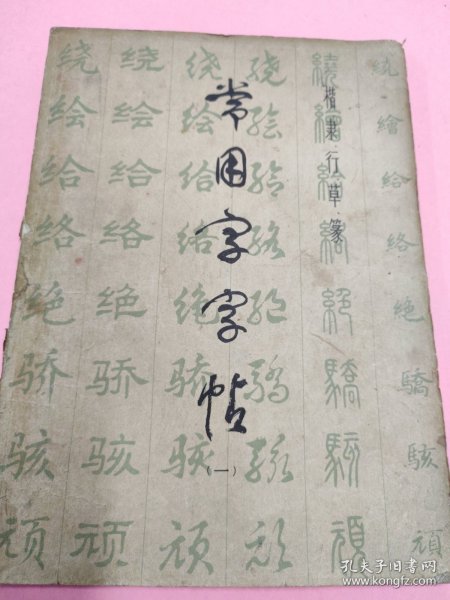 常用字字帖
（一）
楷隶行草篆
繪給絡絶驕駭頑
繞繪給絡絕驕駭頑
绕绘给络绝骄骇顽
绕绘给络绝骄骇顽
绕绘给络绝骄骇顽
绕绘给络绝骄骇顽
孔夫子旧书网
www.kongfz.com